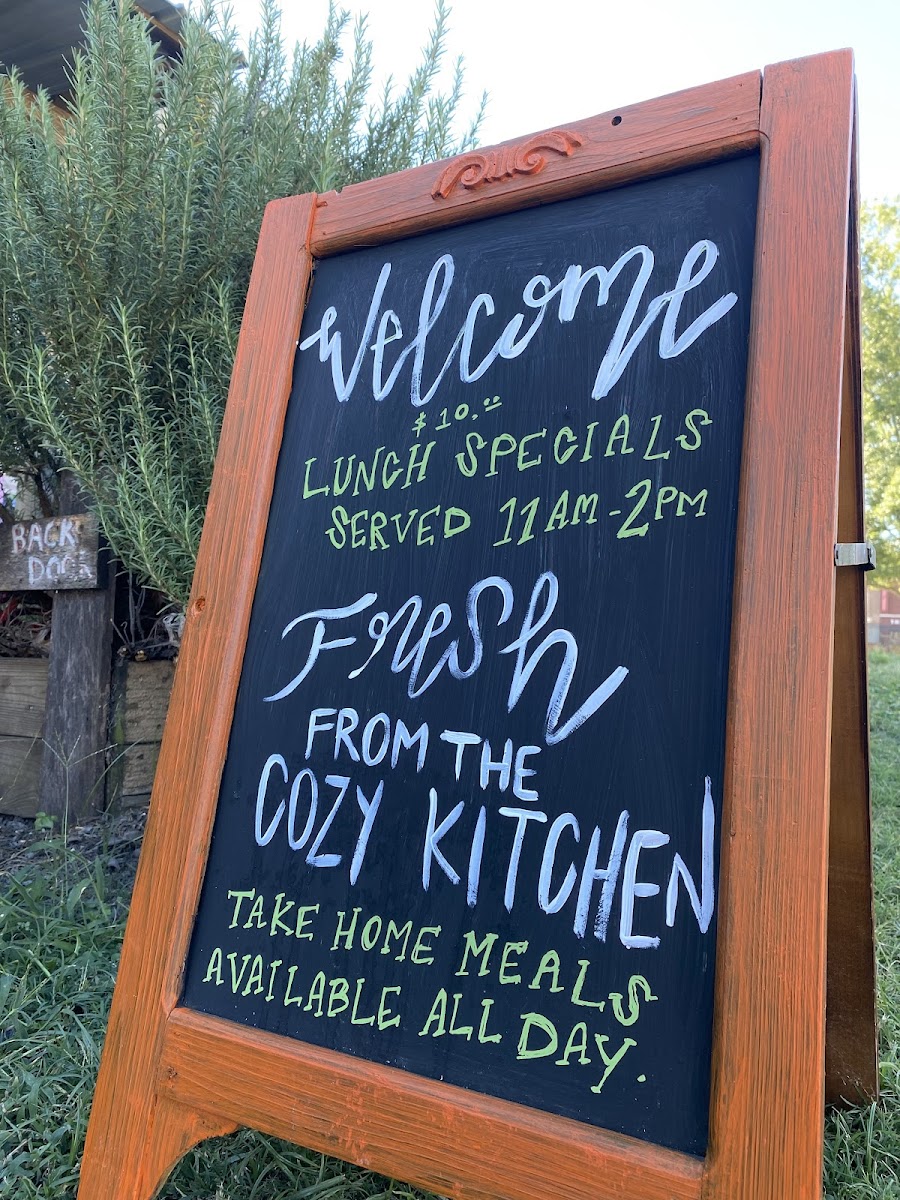 Welcome
$10.00
LUNCH SPECIALS
SERVED 11AM-2PM
Fresh
FROM THE
COZY KITCHEN
TAKE HOME MEALS
AVAILABLE ALL DAY.
BACK
DOOR